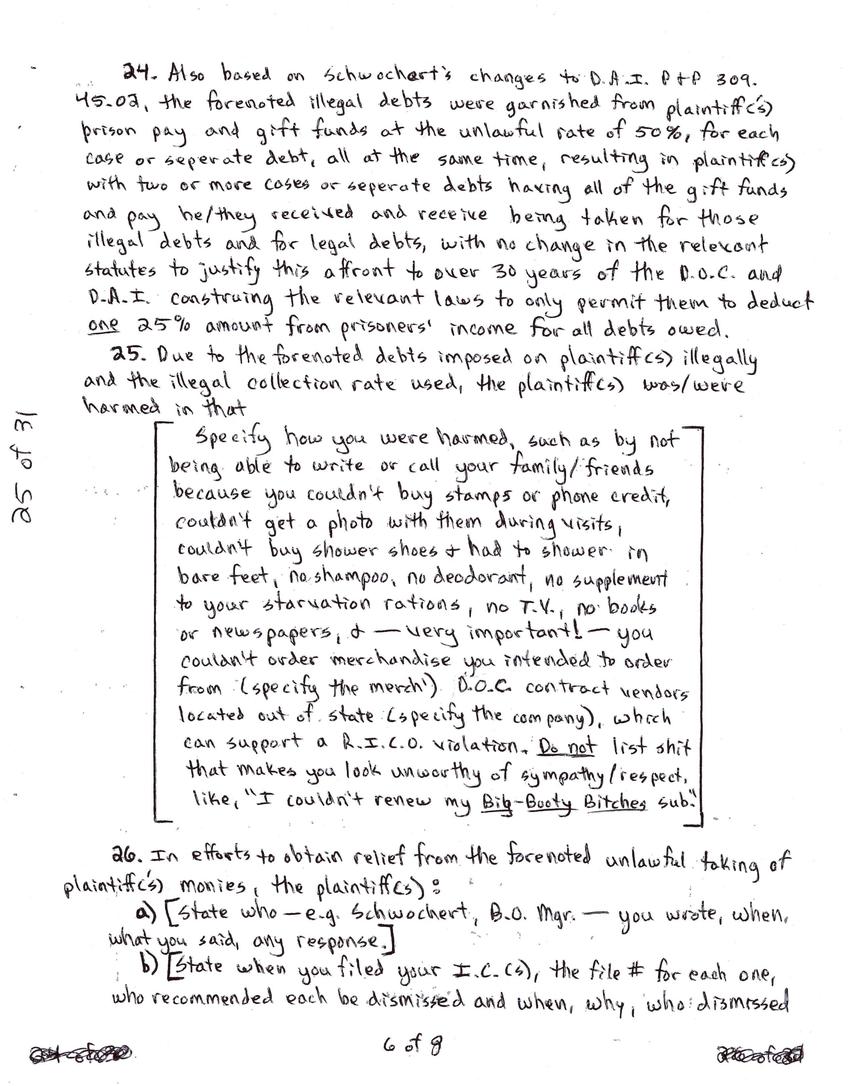 24. Also based on Schwochert's changes to D.A.I. P+P 309.
45.02, the forenoted illegal debts were garnished from plaintiff(s')
prison pay and gift funds at the unlawful rate of 50%, for each
case or seperate debt, all at the same time, resulting in plaintiff(s)
with two or more cases or seperate debts having all of the gift funds
and pay he/they received and receive being taken for those
illegal debts and for legal debts, with no change in the relevant
statutes to justify this affront to over 30 years of the D.O.C. and
D.A.I. construing the relevant laws to only permit them to deduct
one 25% amount from prisoners' income for all debts owed.
25. Due to the forenoted debts imposed on plaintiff(s) illegally
and the illegal collection rate used, the plaintiff(s) was/were
harmed in that
25 of 31
[Specify how you were harmed, such as by not
being able to write or call your family/friends
because you couldn't buy stamps or phone credit,
couldn't get a photo with them during visits,
couldn't buy shower shoes + had to shower in
bare feet, no shampoo, no deodorant, no supplement
to your starvation rations, no T.V., no books
or newspapers, + — very important! — you
couldn't order merchandise you intended to order
from (specify the merch') D.O.C. contract vendors
located out of state (specify the company), which
can support a R.I.C.O. violation. Do not list shit
that makes you look unworthy of sympathy/respect,
like, "I couldn't renew my Big-Booty Bitches sub."]
26. In efforts to obtain relief from the forenoted unlawful taking of
plaintiff(s') monies, the plaintiff(s):
a) [State who — e.g. Schwochert, B.O. Mgr. — you wrote, when,
what you said, any response.]
b) [State when you filed your I.C.(s), the file # for each one,
who recommended each be dismissed and when, why, who dismissed
6 of 8